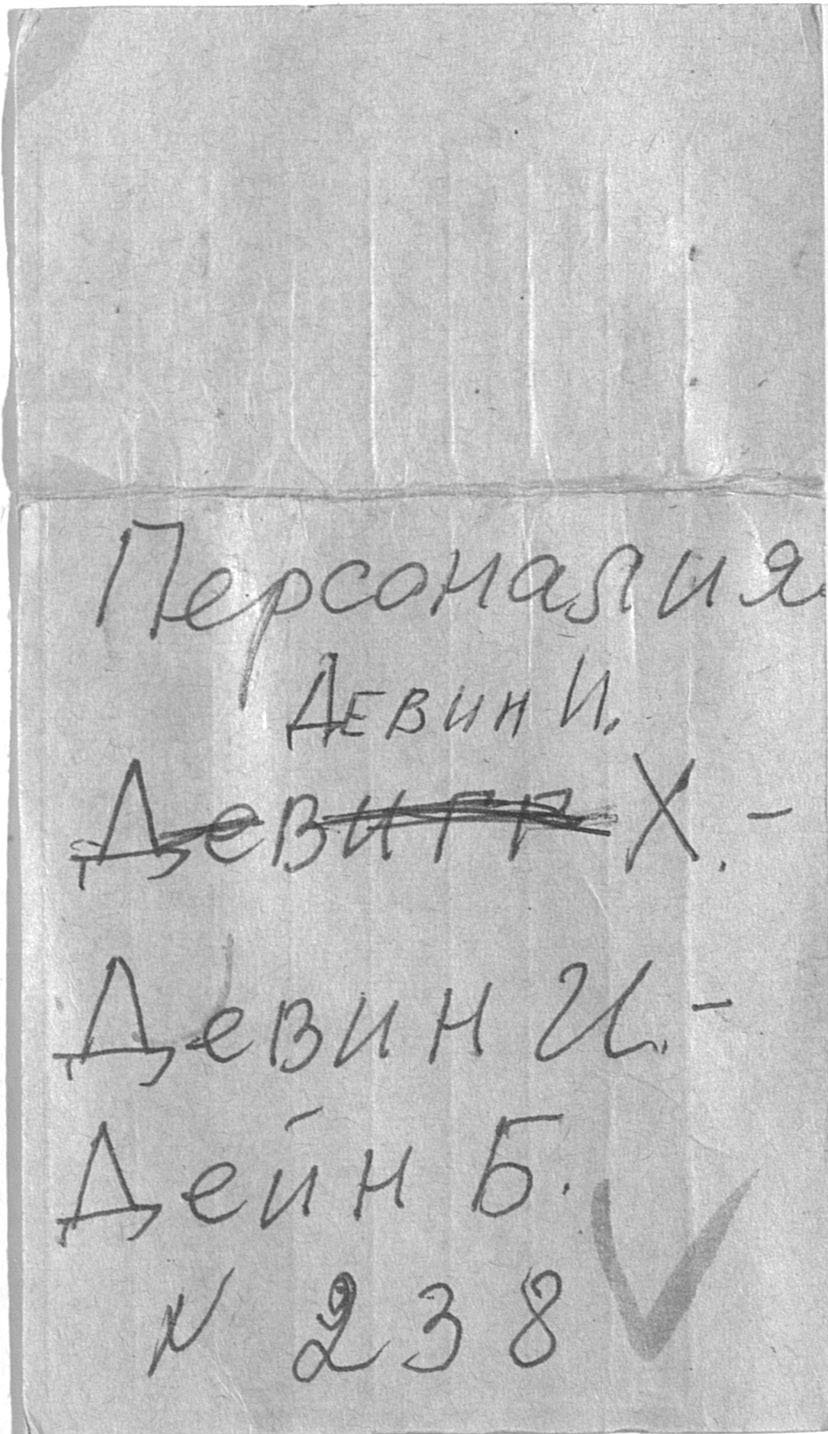 Персоналия
Девин И.
Девигг Х. -
Девин И. -
Дейн Б.
N 238